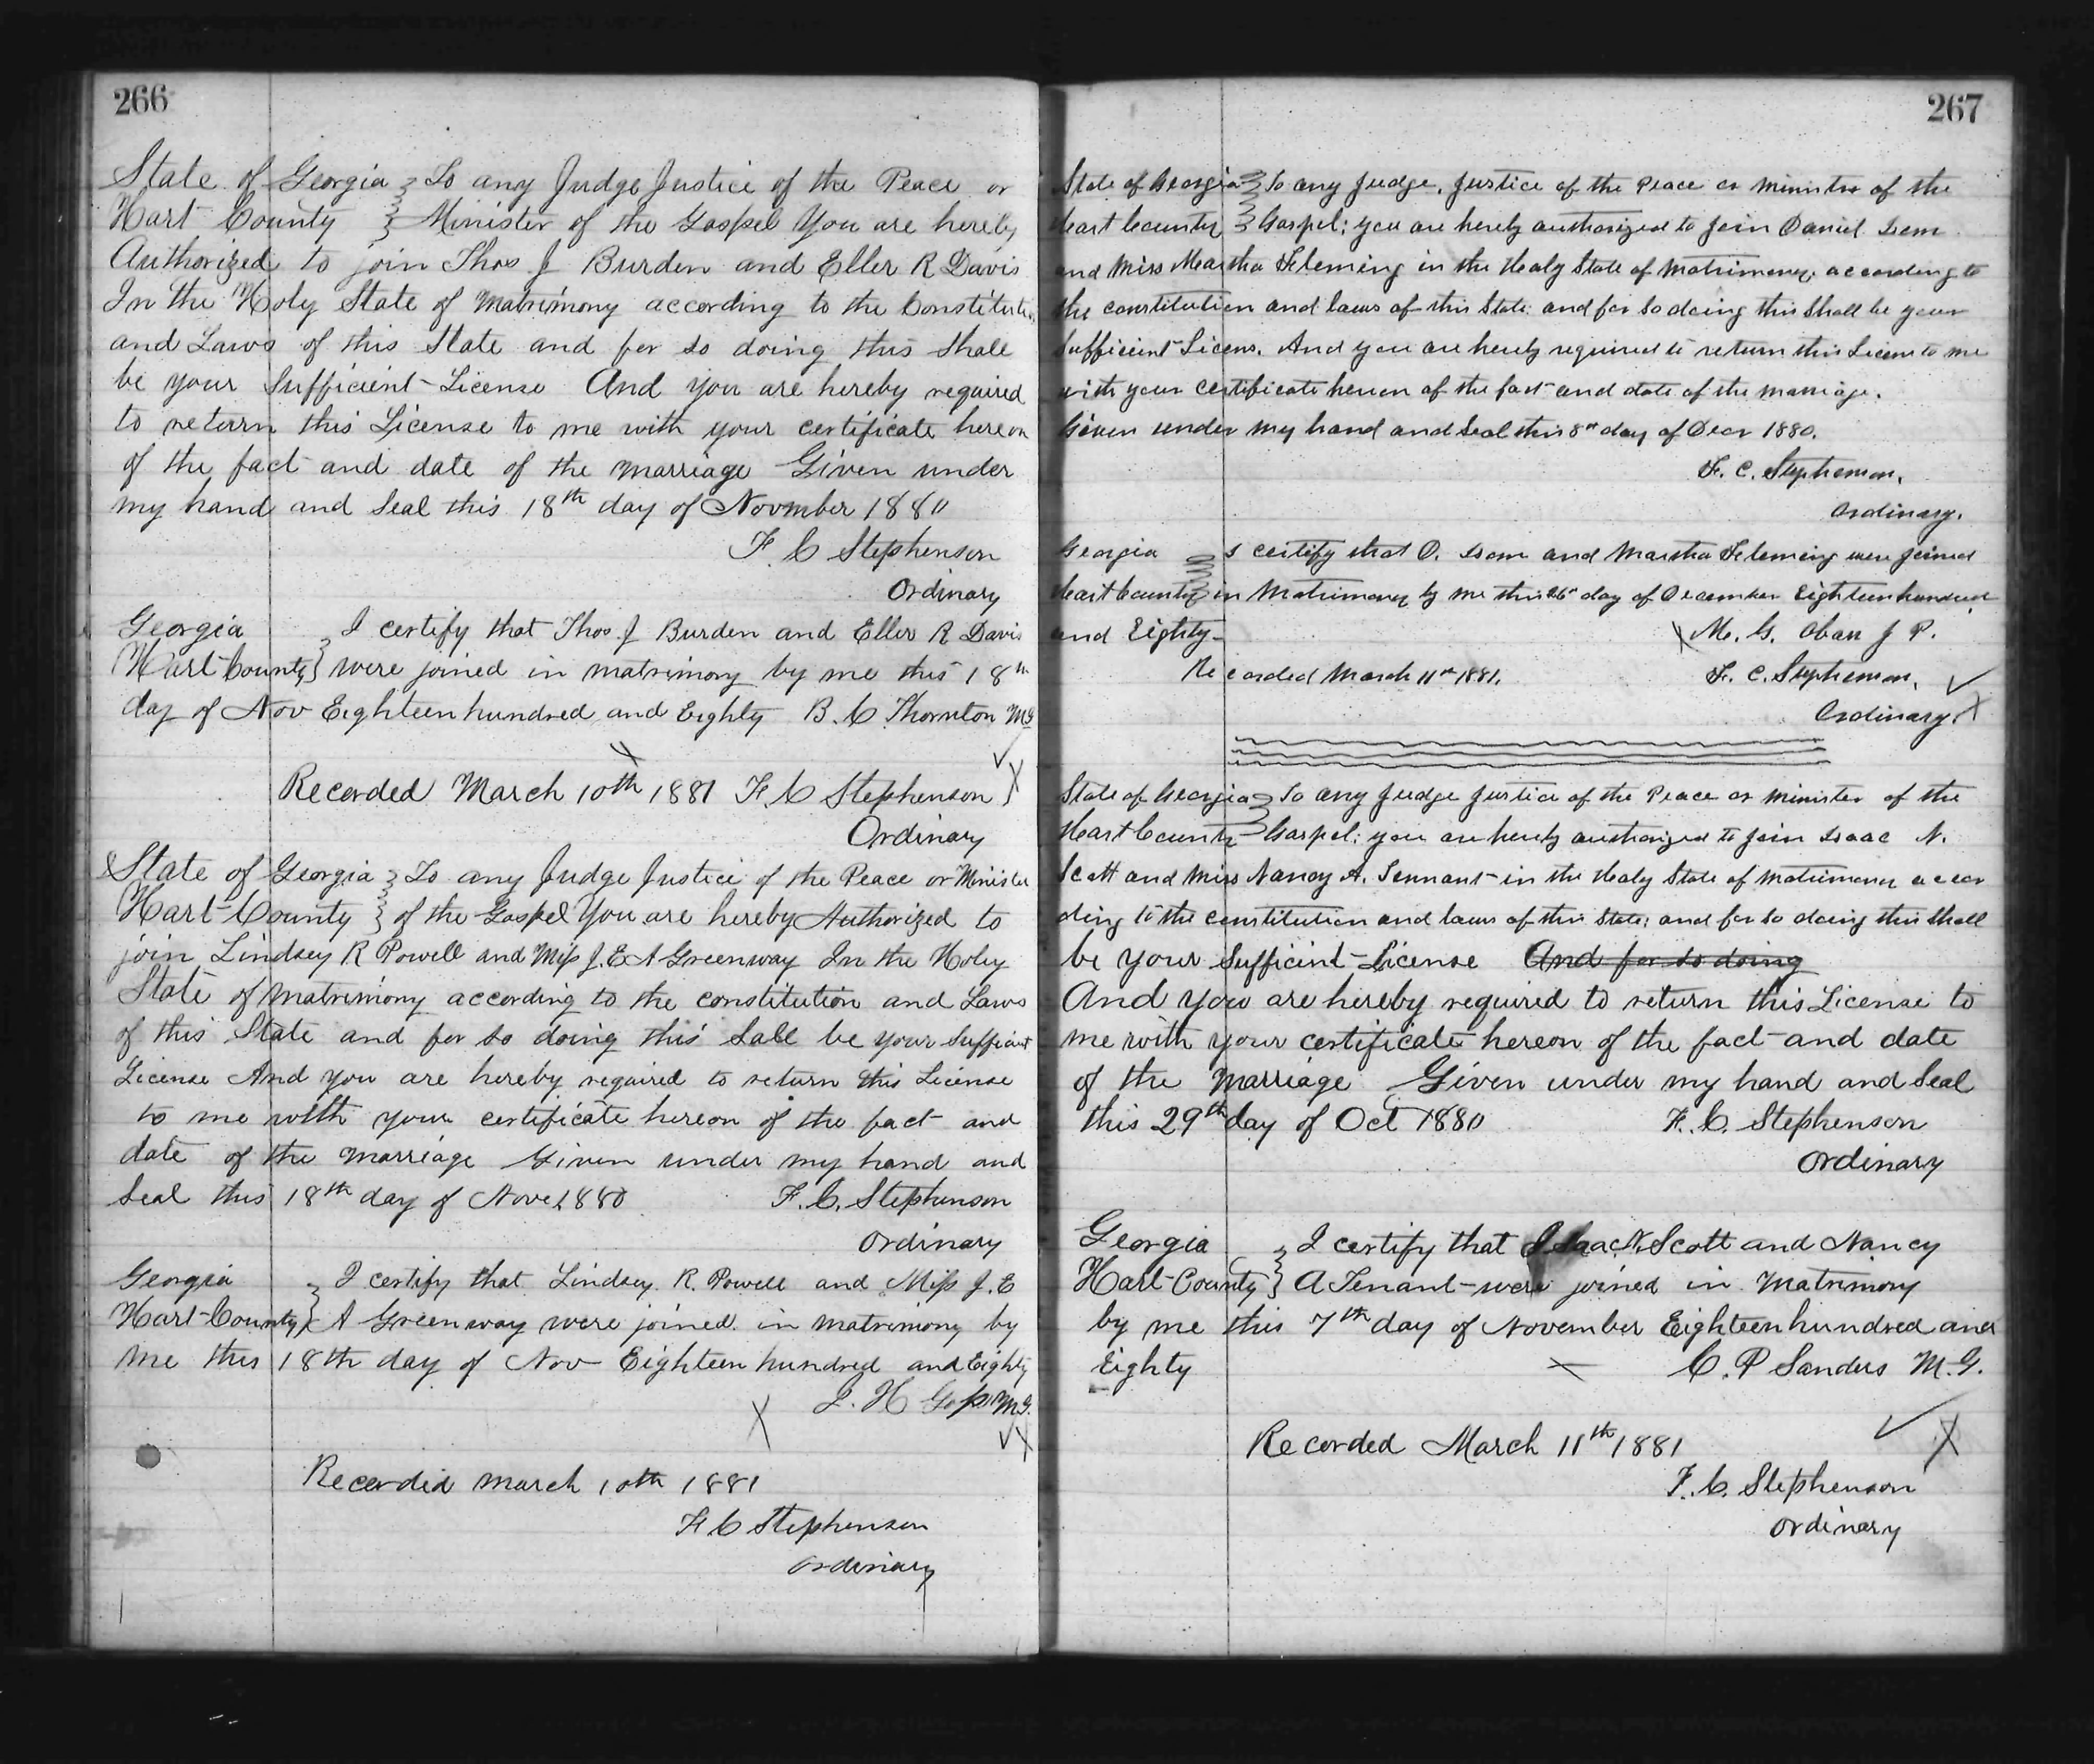 266
State of Georgia To any Judge Justice of the Peace or
Hart County Minister of the Gospel You are hereby
Authorized to join Thos J Burden and Eller R Davis
In the Holy State of Matrimony according to the Constitution
and Laws of this State and for so doing this shall
be your Sufficient License And you are hereby required
to return this License to me with your certificate hereon
of the fact and date of the marriage Given under
my hand and Seal this 18th day of Novmber 1880
F. C Stephenson
Ordinary
Georgia I certify that Thos. J Burden and Eller R Davis
Hart County were joined in matrimony by me this 18th
day of Nov Eighteen hundred and Eighty B. C Thornton MG
Recorded March 10th 1881 F. C Stephenson
Ordinary
State of Georgia To any Judge Justice of the Peace or Minister
Hart County of the Gospel You are hereby Authorized to
join Lindsey R Powell and Miss J. E A Greenway In the Holy
State of matrimony according to the constitution and Laws
of this State and for so doing this Sall be your Sufficient
License And you are hereby required to return this License
to me with your certificate hereon of the fact and
date of the marriage Given under my hand and
Seal this 18th day of Nove 1880 F. C. Stephenson
Ordinary
Georgia I certify that Lindsey R. Powell and Miss J. E
Hart County A Greenway were joined in matrimony by
me this 18th day of Nov Eighteen hundred and Eighty
J. H Goss M.G.
Recordid March 10th 1881
F. C Stephenson
Ordinary
267
State of Georgia To any Judge, Justice of the Peace or Minister of the
Hart County Gospel; you are hereby authorized to join Daniel Isom
and Miss Martha Fleming in the Holy State of Matrimony, according to
the constitution and laws of this State: and for so doing this shall be your
Sufficient Licens. And you are hereby required to return this Licens to me
with your certificate hereon of the fact and date of the marriage.
Given under my hand and Seal this 8th day of Decr 1880.
F. C. Stephenson,
Ordinary.
Georgia I certify that D. Isom and Martha Fleming were joined
Hart County in Matrimony by me this 26th day of December Eighteen hundred
and Eighty
M. G. Obarr J P.
Recorded March 11th 1881. F. C. Stephenson,
Ordinary.
State of Georgia To any Judge Justice of the Peace or Minister of the
Hart County Gospel: you are hereby authorized to join Isaac N.
Scott and Miss Nancy A. Tennant in the Holy State of Matrimony accor
ding to the constitution and laws of this State; and for so doing this shall
be your Sufficint License And for so doing
And you are hereby required to return this License to
me with your certificate hereon of the fact and date
of the Marriage Given under my hand and Seal
this 29th day of Oct 1880 F. C. Stephenson
Ordinary
Georgia I certify that Isaac N Scott and Nancy
Hart County A Tenant were joined in Matrimony
by me this 7th day of November Eighteen hundred and
Eighty C. P Sanders M.G.
Recorded March 11th 1881
F. C. Stephenson
Ordinary